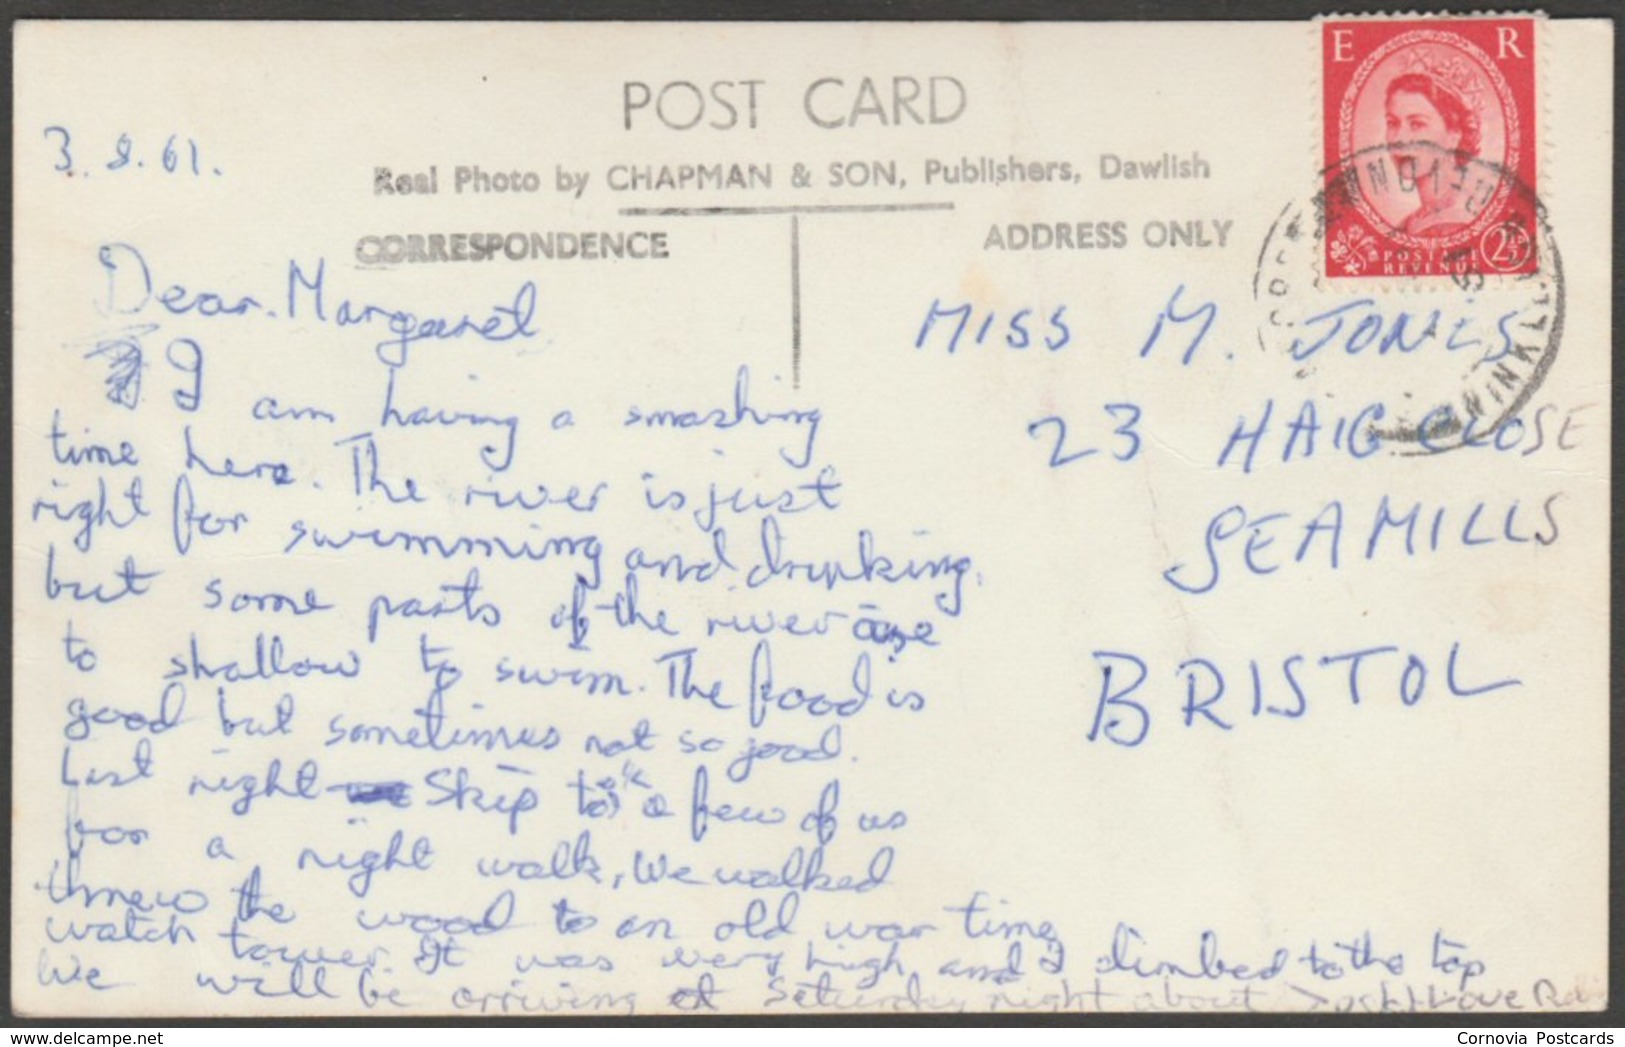 POST CARD
3.8.61.
Real Photo by CHAPMAN & SON, Publishers, Dawlish
CORRESPONDENCE
ADDRESS ONLY
E R
POSTAGE
REVENUE
2½
DEVON
Dear. Margaret
I am having a smashing
time here. The river is just
right for swimming and drinking,
but some parts of the river are
to shallow to swim. The food is
good but sometimes not so good.
Last night Skip took a few of us
for a night walk, We walked
threw the wood to an old war time
watch tower. It was very high and I climbed to the top
We will be arriving at Saturday night about Love Rd
MISS M. JONES
23 HAIG CLOSE
SEAMILLS
BRISTOL
Cornovia Postcards